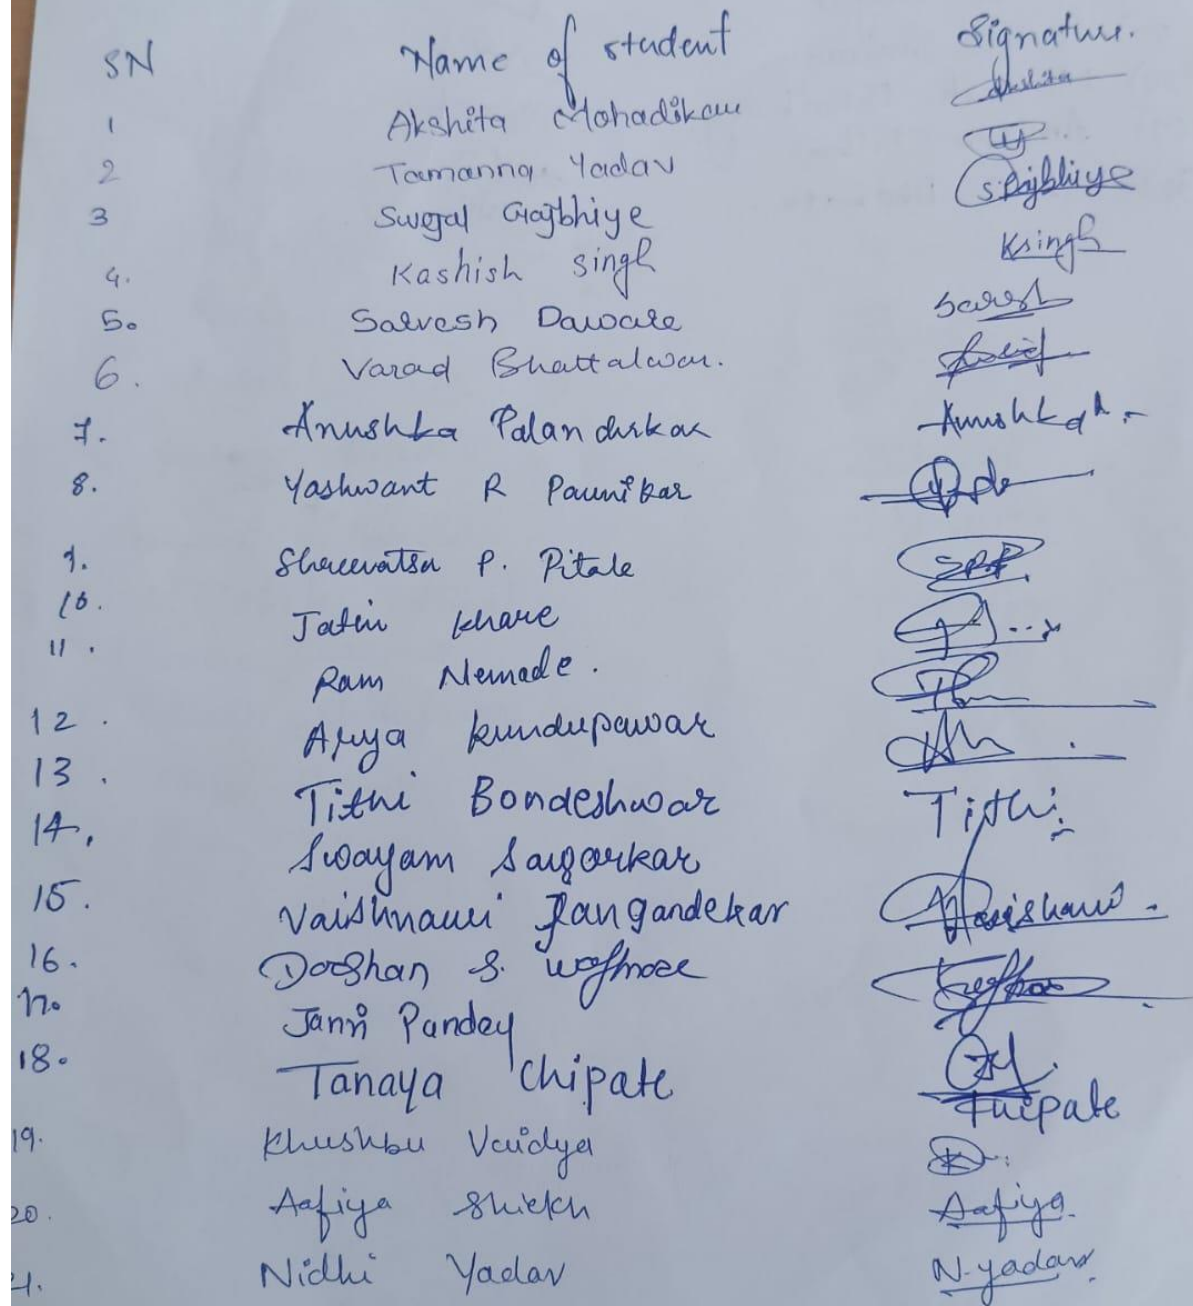 SN Name of student Signature.
1 Akshita Mohadikar Akshita
2 Tamanna Yadav
3 Swejal Gajbhiye S.Gajbhiye
4. Kashish Singh KSingh
5. Sarvesh Daware Sarvesh
6. Varad Bhattalwar.
7. Anushka Palandurkar Anushka
8. Yashwant R Paunikar
9. Shreevatsa P. Pitale SPP
10. Jatin Khare
11. Ram Nemade.
12. Arya Kundupawar
13. Tithi Bondeshwar Tithi
14. Swayam Saygarkar
15. Vaishnavi Rangandekar Vaishnavi
16. Darshan S. Waghmare
17. Janvi Pandey
18. Tanaya Chipate Tchipate
19. Khushbu Vaidya
20. Aafiya Shiekh Aafiya
21. Nidhi Yadav N.yadav